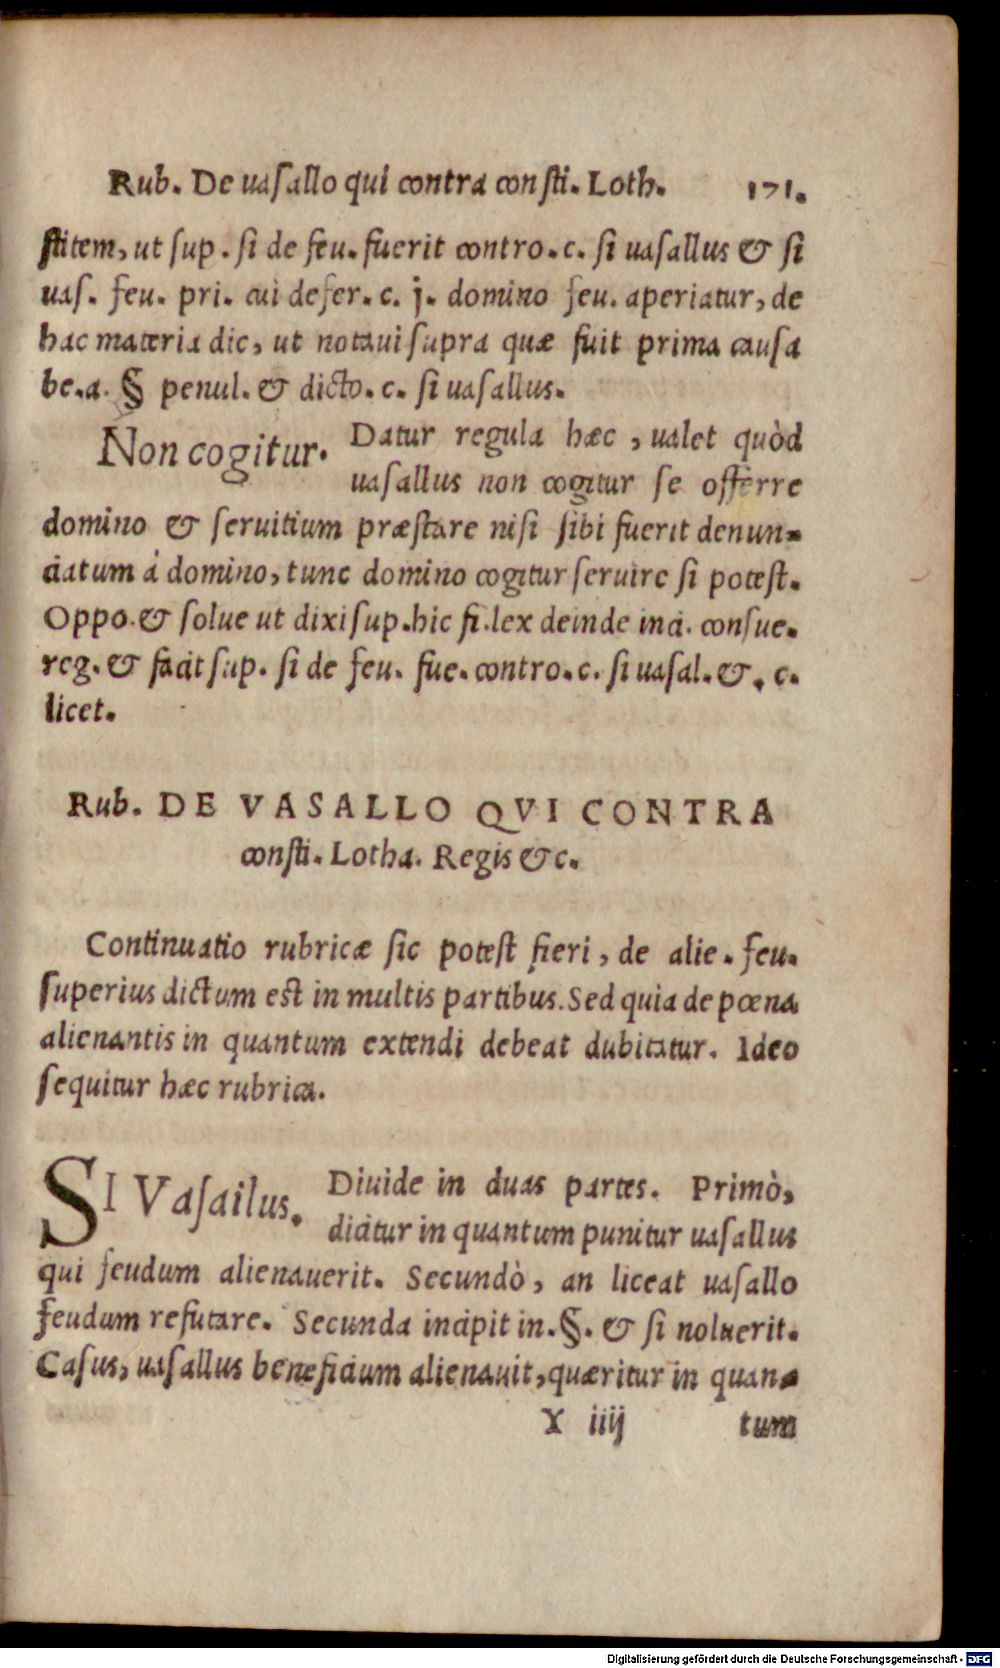 Rub. De uasallo qui contra consti. Loth. 171.
stitem, ut sup. si de feu. fuerit contro. c. si uasallus & si
uas. feu. pri. cui defer. c. j. domino feu. aperiatur, de
hac materia dic, ut notaui supra quæ fuit prima causa
be. a. § penul. & dicto. c. si uasallus.
Non cogitur. Datur regula hæc, ualet quòd
uasallus non cogitur se offerre
domino & seruitium præstare nisi sibi fuerit denun-
ciatum á domino, tunc domino cogitur seruire si potest.
Oppo. & solue ut dixi sup. hic fi. lex deinde inci. consue.
reg. & facit sup. si de feu. fue. contro. c. si uasal. &. c.
licet.
Rub. DE VASALLO QVI CONTRA
consti. Lotha. Regis &c.
Continuatio rubricæ sic potest fieri, de alie. feu.
superius dictum est in multis partibus. Sed quia de pœna
alienantis in quantum extendi debeat dubitatur. Ideo
sequitur hæc rubrica.
SI Vasailus. Diuide in duas partes. Primò,
dicitur in quantum punitur uasallus
qui feudum alienauerit. Secundò, an liceat uasallo
feudum refutare. Secunda incipit in. §. & si noluerit.
Casus, uasallus beneficium alienauit, quæritur in quan-
Y iiij tum
Digitalisierung gefördert durch die Deutsche Forschungsgemeinschaft - DFG